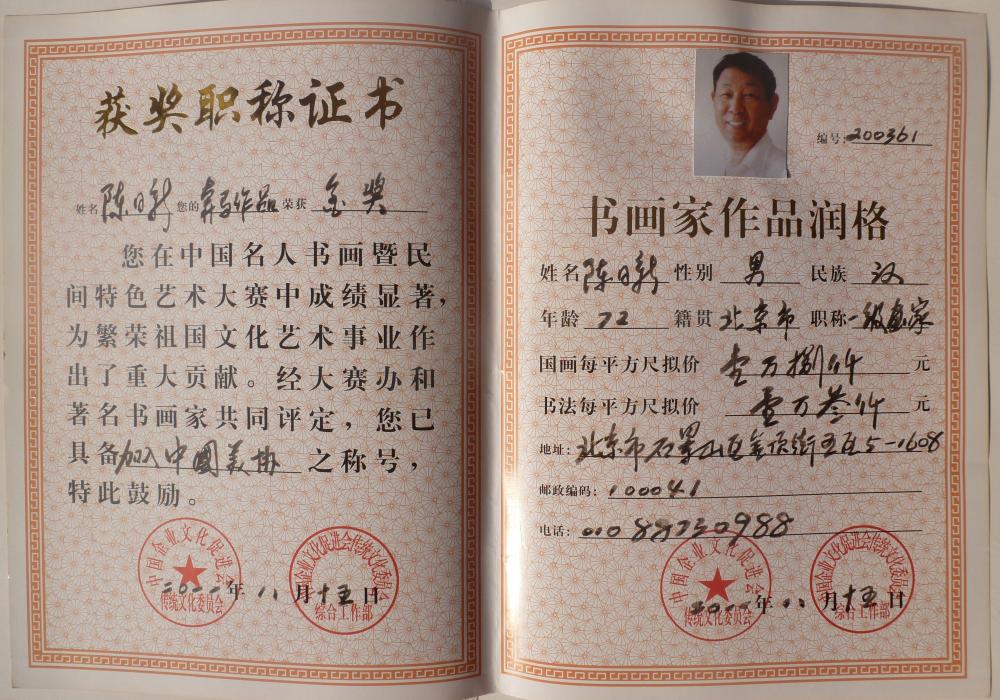 获奖职称证书
姓名 陈日新 您的 奔马作品 荣获 金奖
您在中国名人书画暨民
间特色艺术大赛中成绩显著，
为繁荣祖国文化艺术事业作
出了重大贡献。经大赛办和
著名书画家共同评定，您已
具备加入中國美协之称号，
特此鼓励。
中国企业文化促进会
传统文化委员会
中国企业文化促进会传统文化委员会
综合工作部
二〇一一年 八 月十五日
编号：200361
书画家作品润格
姓名 陈日新 性别 男 民族 汉
年龄 72 籍贯 北京市 职称 一级画家
国画每平方尺拟价 壹万捌仟 元
书法每平方尺拟价 壹万叁仟 元
地址：北京市石景山区 街 5-1608
邮政编码：100041
电话：010 88730988
中国企业文化促进会
传统文化委员会
中国企业文化促进会传统文化委员会
综合工作部
二〇一一年 八 月十五日